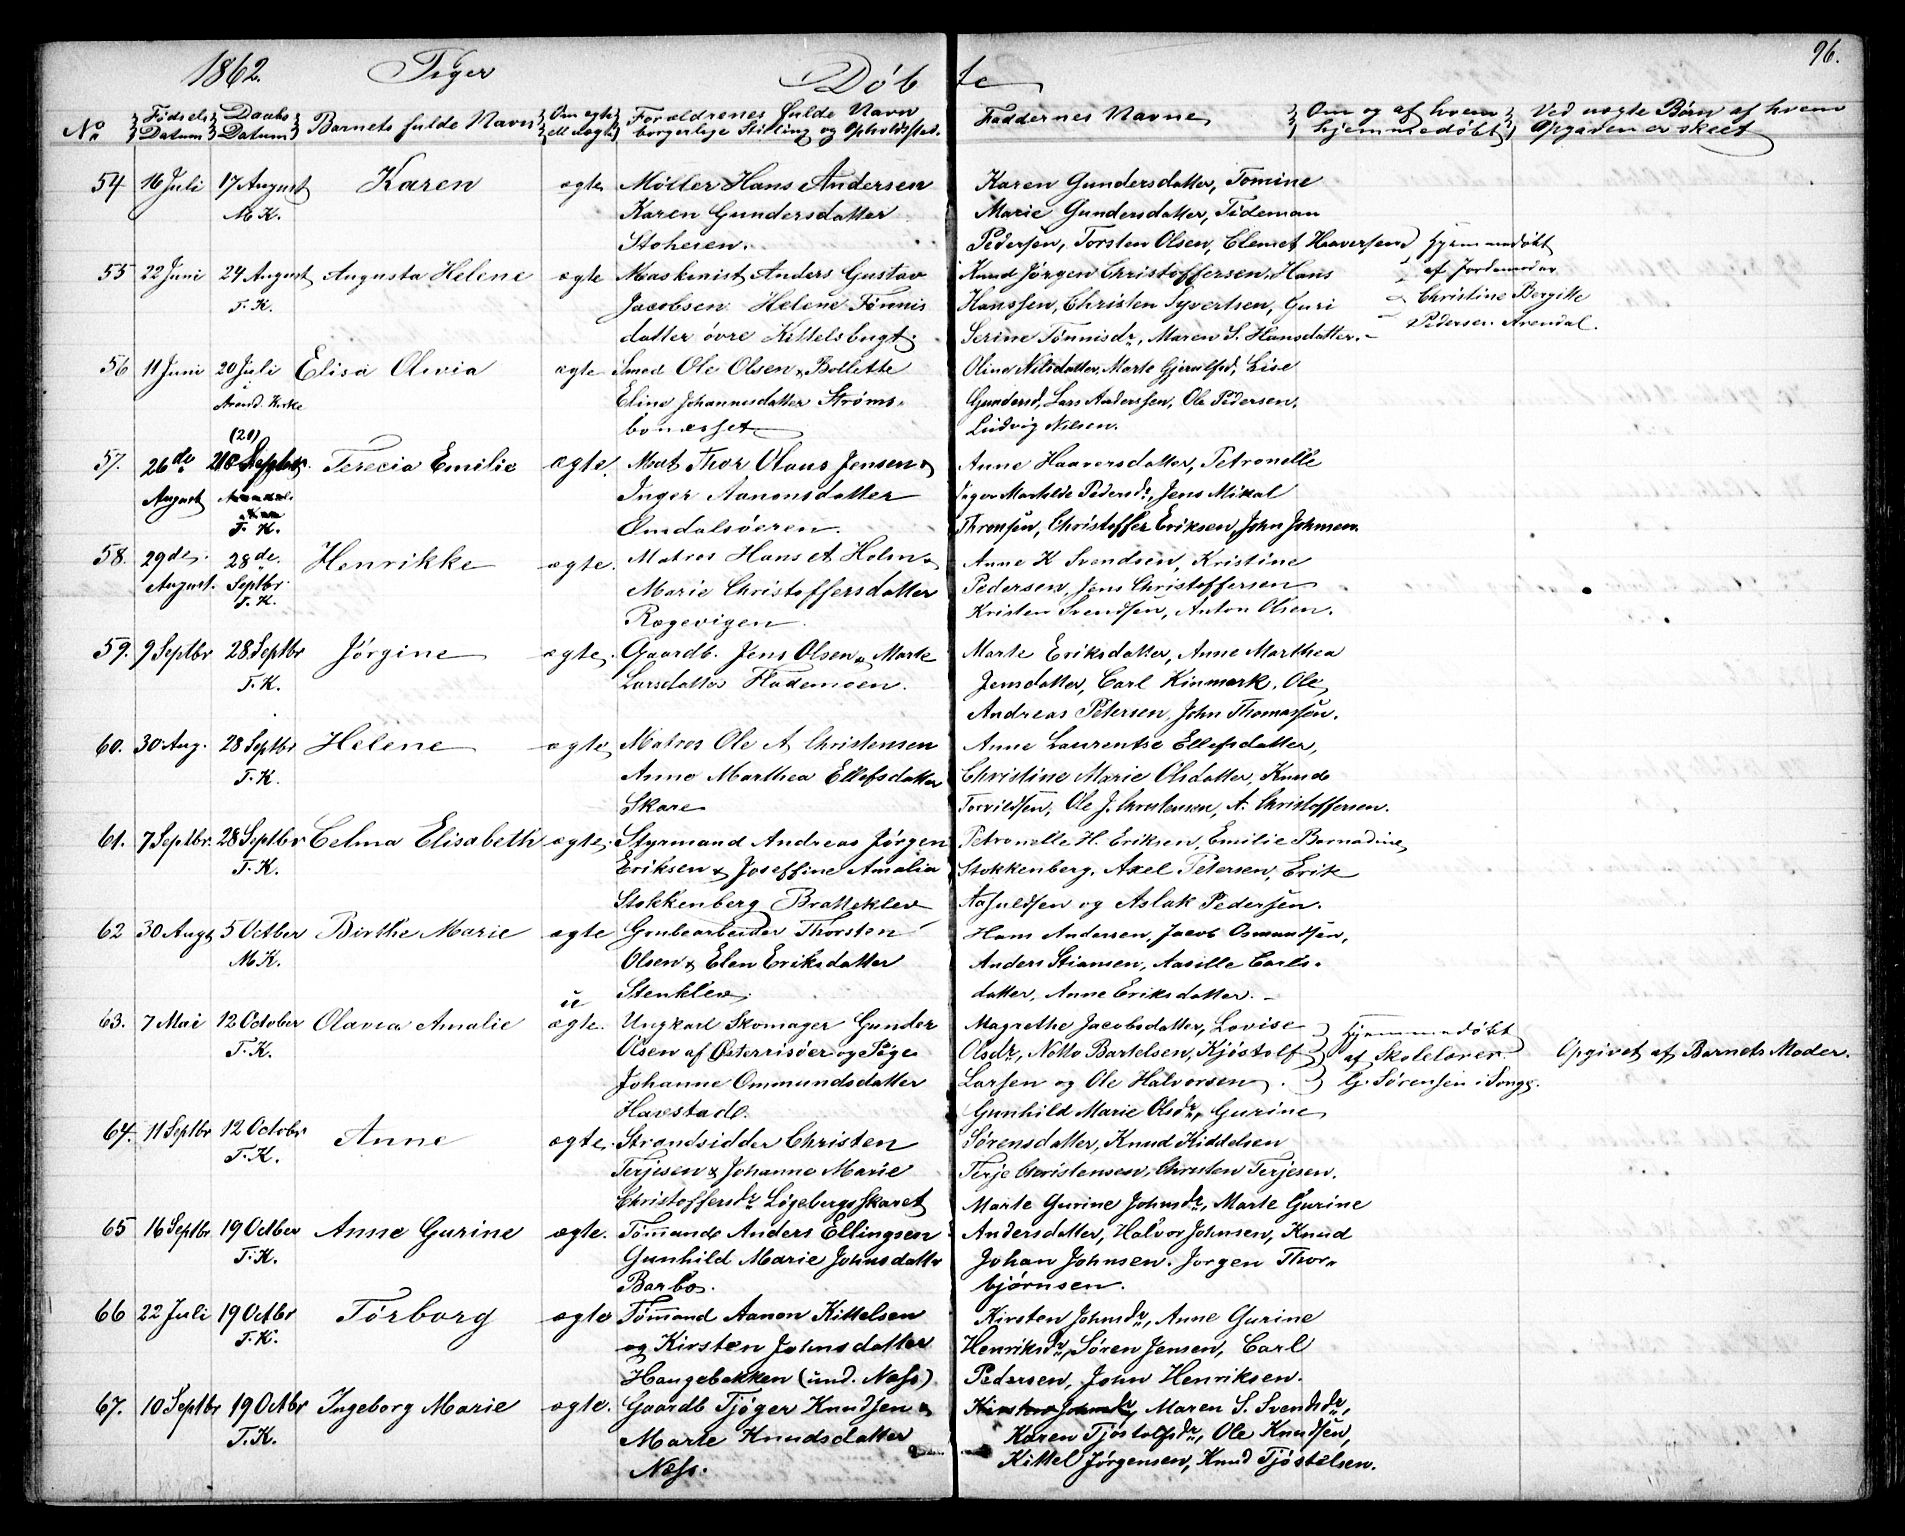 1862. Piger Døbte 96.
No Fødsels Datum Daabs Datum Barnets fulde Navn Om ægte ell. uægte Forældrenes fulde Navn borgerlige Stilling og Opholdssted. Faddernes Navne Om og af hvem hjemmedøbt Ved uægte Børn af hvem Opgaven er skeet
54 16 Juli 17 August Karen ægte Møller Hans Andersen Karen Gundersdatter, Tomine
M K. Karen Gundersdatter Marie Gundersdatter, Tideman
Stoheien. Pedersen, Torsten Olsen, Clemet Haaversen
55 22 Juni 24 August Augusta Helene ægte Maskenist Anders Gustav Knud Jørgen Christoffersen, Hans Hjemmedøbt
T. K. Jacobsen Helene Tønnis Hanssen, Christen Syvertsen, Guri af Jordemoder
datter øvre Kittelsbugt. Serine Tønnisdr, Maren S. Hansdatter. Christine Bergitte
Pedersen Arendal.
56 11 Juni 20 Juli Elisa Olevia ægte Smed Ole Olsen & Bollette Oline Nilsdatter, Marte Gjerulfsd, Lise
i Arend. Kirke Eline Johannesdatter Strøms- Gundersd, Lars Anderssen, Ole Pedersen,
bonesset Ludvig Nilsen.
57. 26de (20) Septbr. Terecia Emilie ægte. Mat. Thor Olaus Jensen & Anne Haaversdatter, Petronelle
August Inger Aanonsdatter Inger Mathilde Pedersdr, Jens Mikal
T. K. Omdalsøeren. Thronsen, Christoffer Eriksen, John Johnsen.
58. 29de 28de Henrikke ægte. Matros Hans A Holm & Anne K Svendsen, Kristine
August. Septbr. Marie Christoffersdatter Pedersen, Jens Christoffersen
T. K. Rægevigen. Kristen Svendsen, Anton Olsen.
59. 9 Septbr 28 Septbr Jørgine ægte. Gaardb. Jens Olsen & Marte Marte Eriksdatter, Anne Marthea
T. K. Larsdatter Flademoen. Jensdatter, Carl Kinmark, Ole
Andreas Petersen, John Thomassen.
60. 30 Aug. 28 Septbr Helene ægte Matros Ole A Christensen Anne Laurentse Ellefsdatter,
T. K. Anne Marthea Ellefsdatter Christine Marie Olsdatter, Knud
Skare Torvildsen, Ole J. Christensen, A. Christoffersen.
61. 7 Septbr. 28 Septbr Celma Elisabeth ægte. Styrmand Andreas Jørgen Petronelle H. Eriksen, Emilie Bernadine
T. K. Eriksen & Joseffine Amalia Stokkenberg, Axel Petersen, Erik
Stokkenberg Bratteklev Aasuldsen og Aslak Pedersen.
62 30 Augt 5 Octber Birthe Marie ægte Grubearbeider Thorsten Hans Andersen, Jacob Osmundsen,
M K. Olsen & Elen Eriksdatter Anders Stiansen, Aasille Carls-
Stenklev. datter, Anne Eriksdatter.
63. 7 Mai 12 October Olavia Amalie uægte. Ungkarl Skomager Gunder Magrethe Jacobsdatter, Lovise Hjemmedøbt
T. K. Olsen af Østerrisøer og Pige Olsdr, Notto Bartelsen, Kjøstolf af Skolelærer Opgivet af Barnets Moder.
Johanne Ommundsdatter Larsen og Ole Halvorsen. G. Sørensen i Songe.
Havstad.
64. 11 Septbr 12 Octobr Anne ægte. Strandsidder Christen Gunhild Marie Olsdr, Gurine
T. K. Terjesen & Johanne Marie Sørensdatter, Knud Kiddelsen
Christoffersdr Løgebergsskaret Terje Christensen, Christen Terjesen.
65 16 Septbr 19 Octber Anne Gurine ægte. Tømand Anders Ellingsen Marte Gurine Johnsdr, Marte Gurine
T. K. Gunhild Marie Johnsdatter Andersdatter, Halvor Johnsen, Knud
Barbo. Johan Johnsen. Jørgen Thor-
bjørnsen.
66 22 Juli 19 Octbr Tørborg ægte Tømand Aanon Kittelsen Kirsten Johnsdr, Anne Gurine
T. K. og Kirsten Johnsdatter Henriksdr, Søren Jensen, Carl
Haugebakken (und. Næss) Pedersen, John Henriksen.
67. 10 Septbr 19 Octbr Ingeborg Marie ægte. Gaardb Tjøger Knudsen & Kirsten Johnsdr, Maren S. Svendsdr,
T. K. Marte Knudsdatter Karen Tjøstolfsdr, Ole Knudsen,
Næss. Kittel Jørgensen, Knud Tjøstelsen.